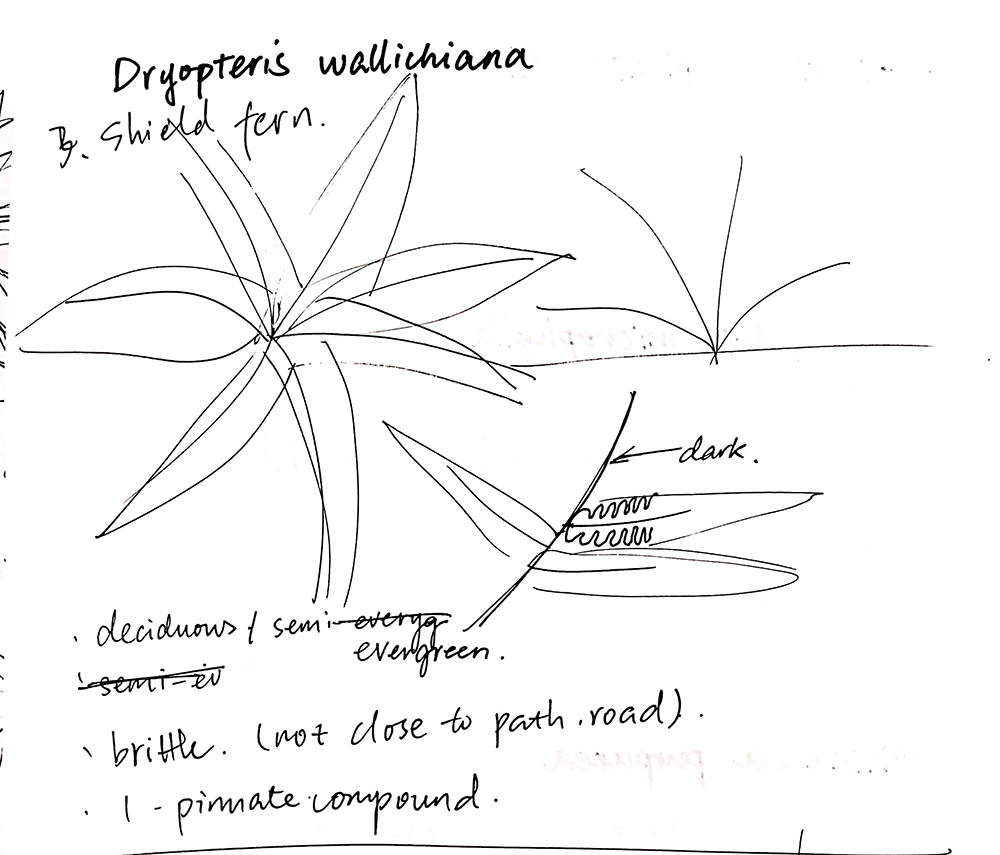 Dryopteris wallichiana
Shield fern.
dark.
. deciduous / semi-
evergreen.
. brittle. (not close to path. road).
. 1 - pinnate compound.